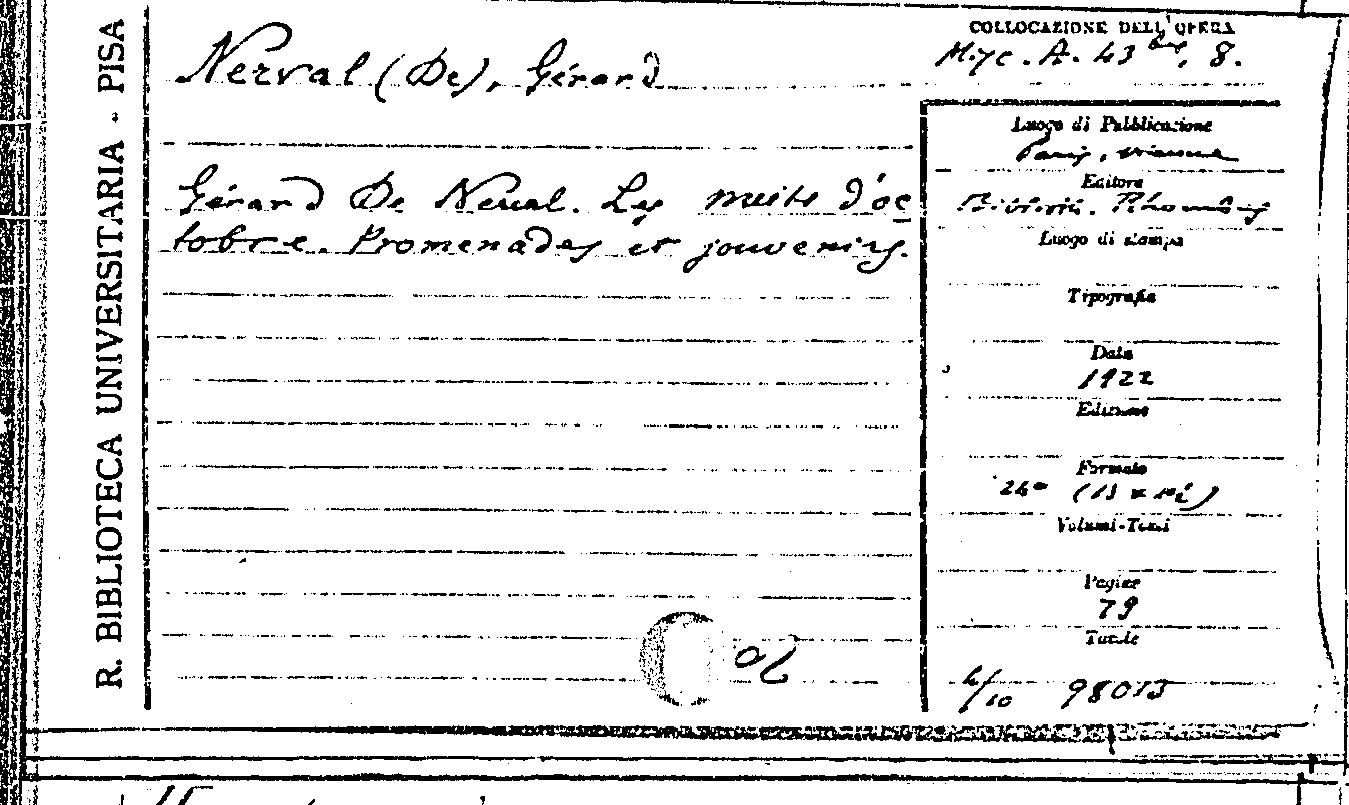 R. BIBLIOTECA UNIVERSITARIA - PISA
Nerval (De), Gérard
Gérard De Nerval. Les nuits d'oc
tobre. Promenades et souvenirs.
COLLOCAZIONE DELL'OPERA
A. 43 8.
Luogo di Pubblicazione
Paris, Vienne
Editore
Luogo di stampa
Tipografia
Data
1922
Edizione
Formato
24°
Volumi-Tomi
Pagine
79
Tavole
98013